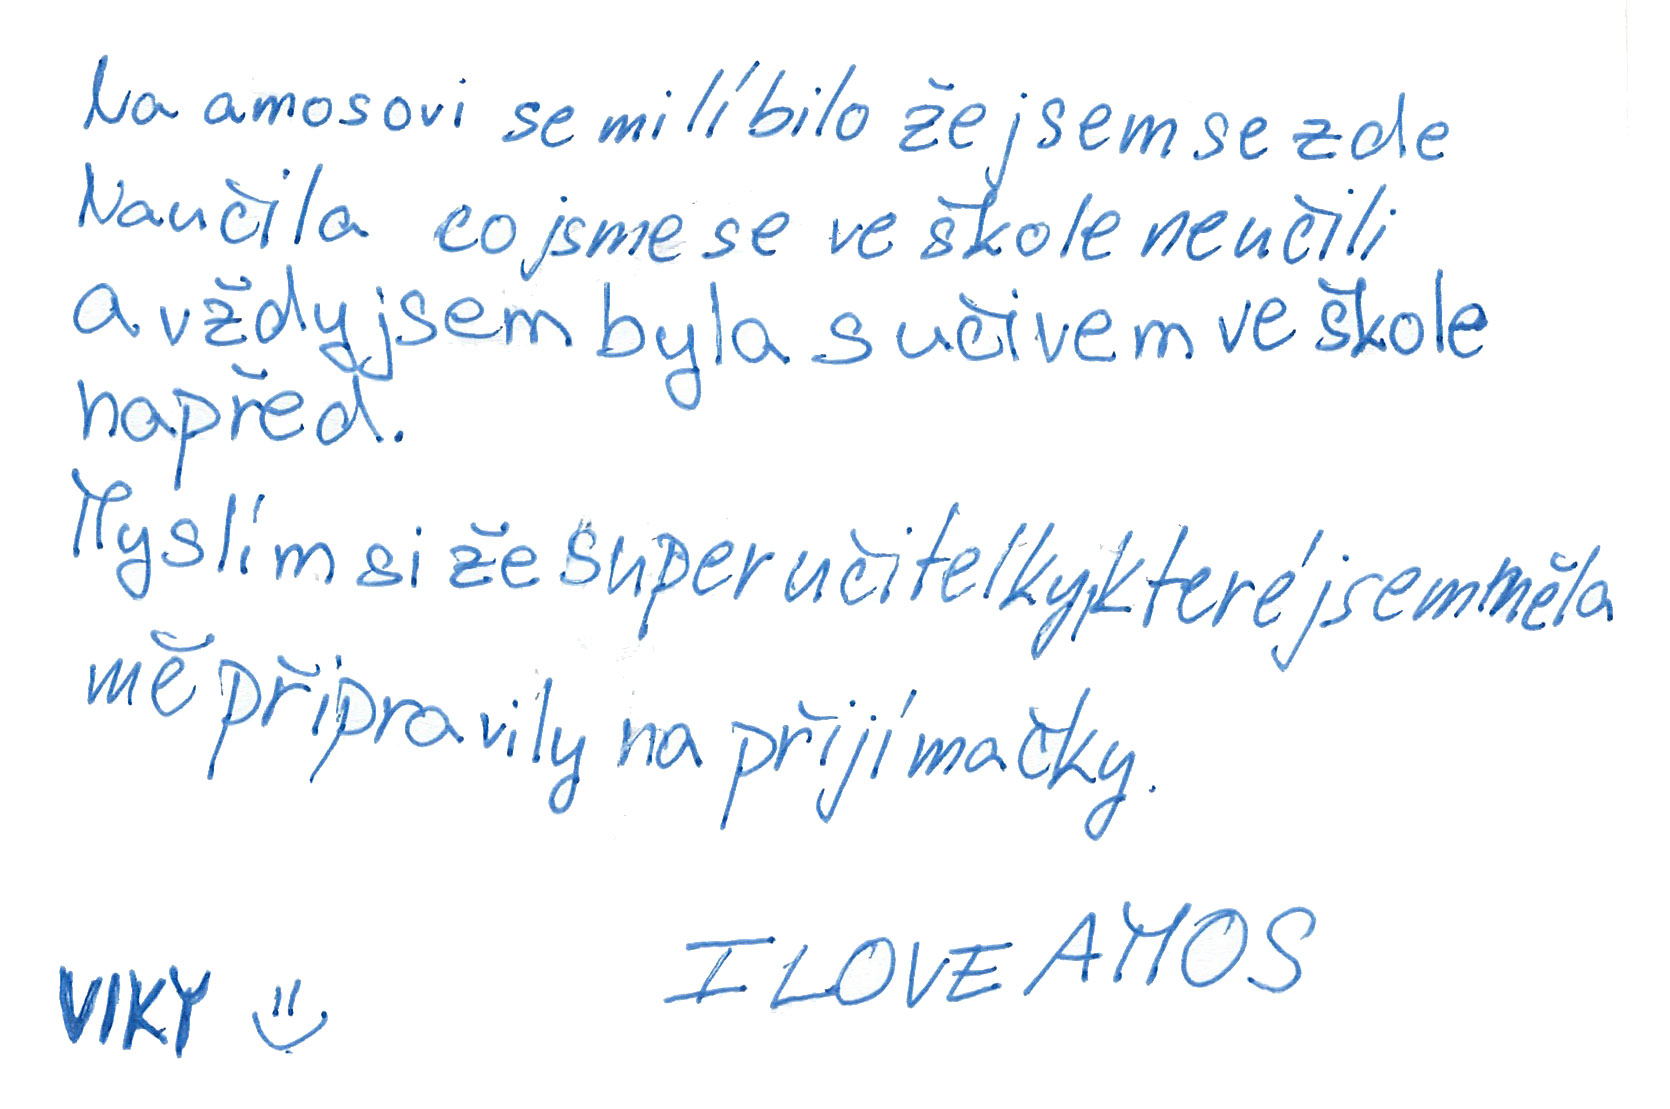 Na amosovi se mi líbilo že jsem se zde
Naučila co jsme se ve škole neučili
a vždy jsem byla s učivem ve škole
napřed.
Myslím si že super učitelky, které jsem měla
mě připravily na přijímačky.
I LOVE AMOS
VIKY